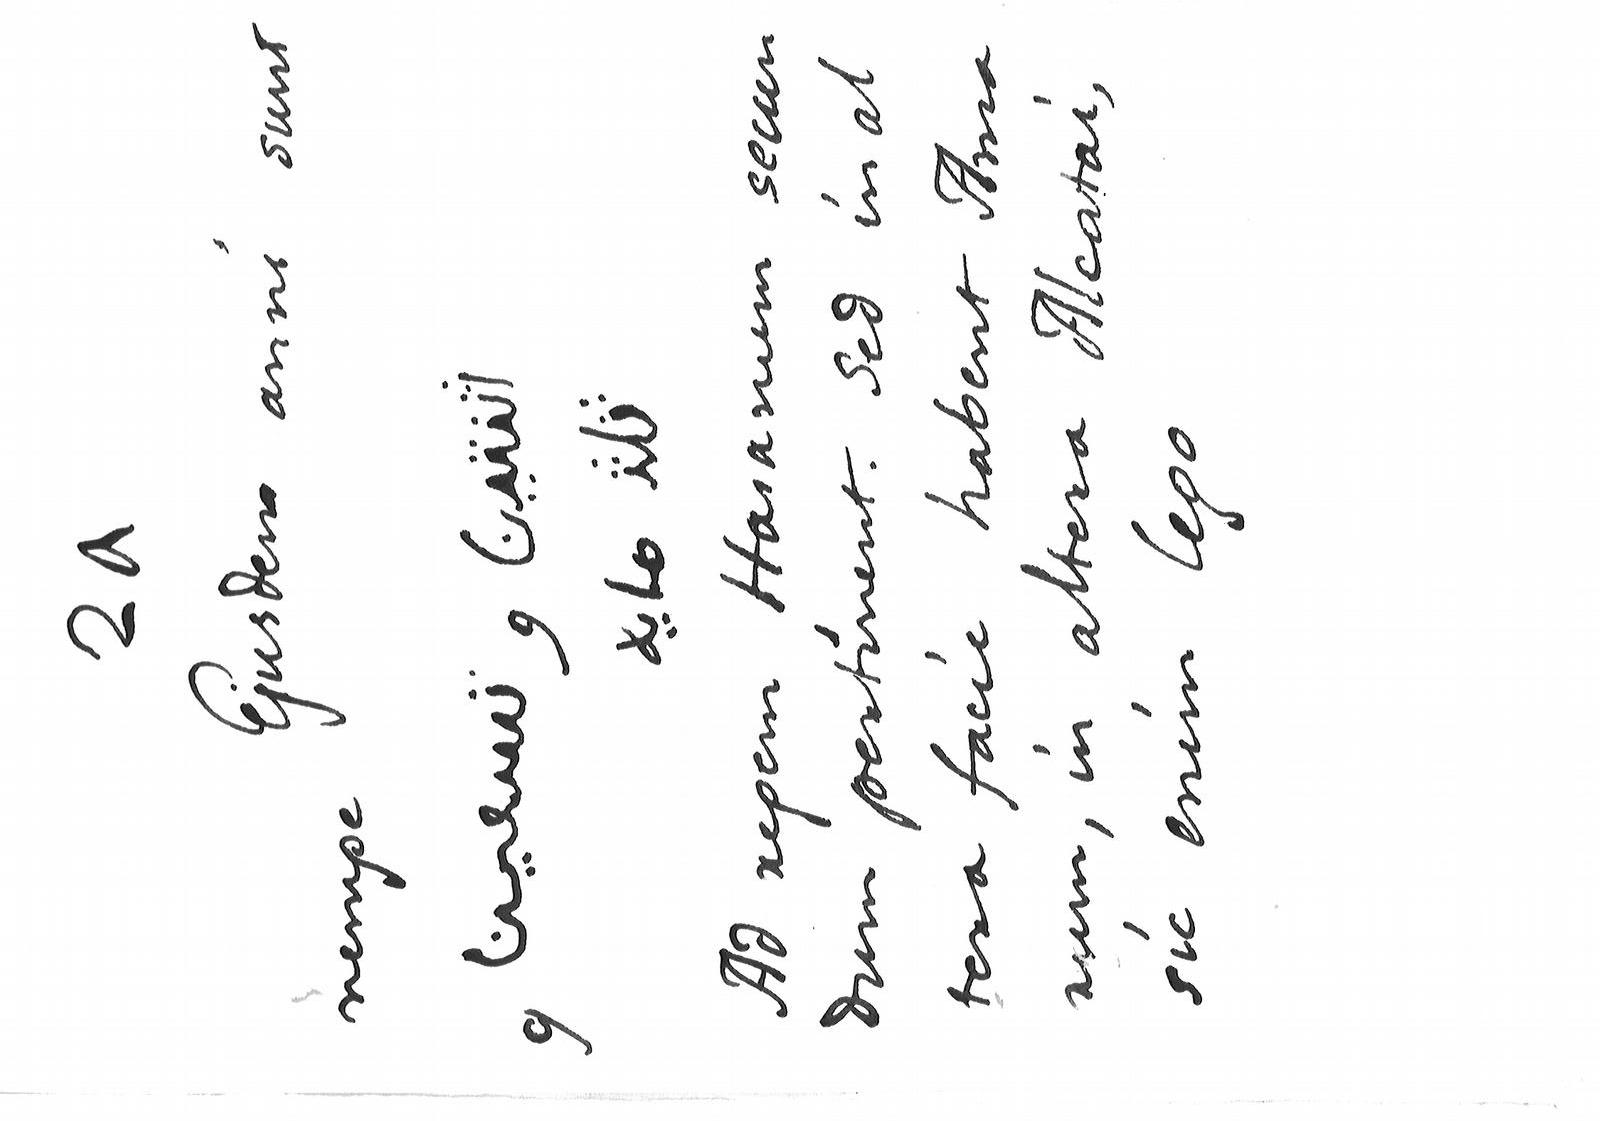 2 A
Ejusdem anni sunt
nempe
اثنين و تسعين و
ثلث مايه
Ad regem Haranum secun
dum pertinent. Sed in al
tera facie habent Ama
num, in altera Alcatai,
sic enim lego